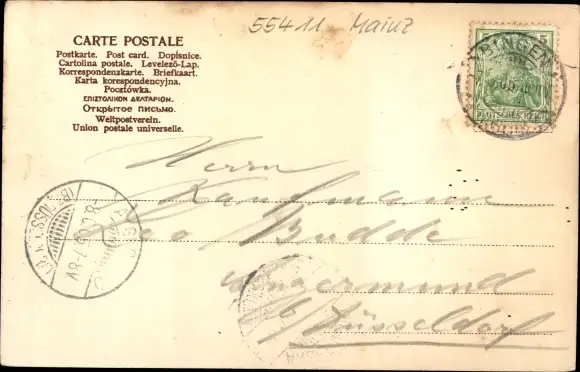 55411 Mainz
CARTE POSTALE
Postkarte. Post card. Dopisnice.
Cartolina postale. Levelező-Lap.
Korrespondenzkarte. Briefkaart.
Karta korrespondencyjna.
Pocztówka.
ΕΠΙΣΤΟΛΙΚΟΝ ΔΕΛΤΑΡΙΟΝ.
Открытое письмо.
Weltpostverein.
Union postale universelle.
5
BINGEN
DEUTSCHES REICH
Herrn
Kaufmann
Leo Budde
Angermund
b/ Düsseldorf
7-8V